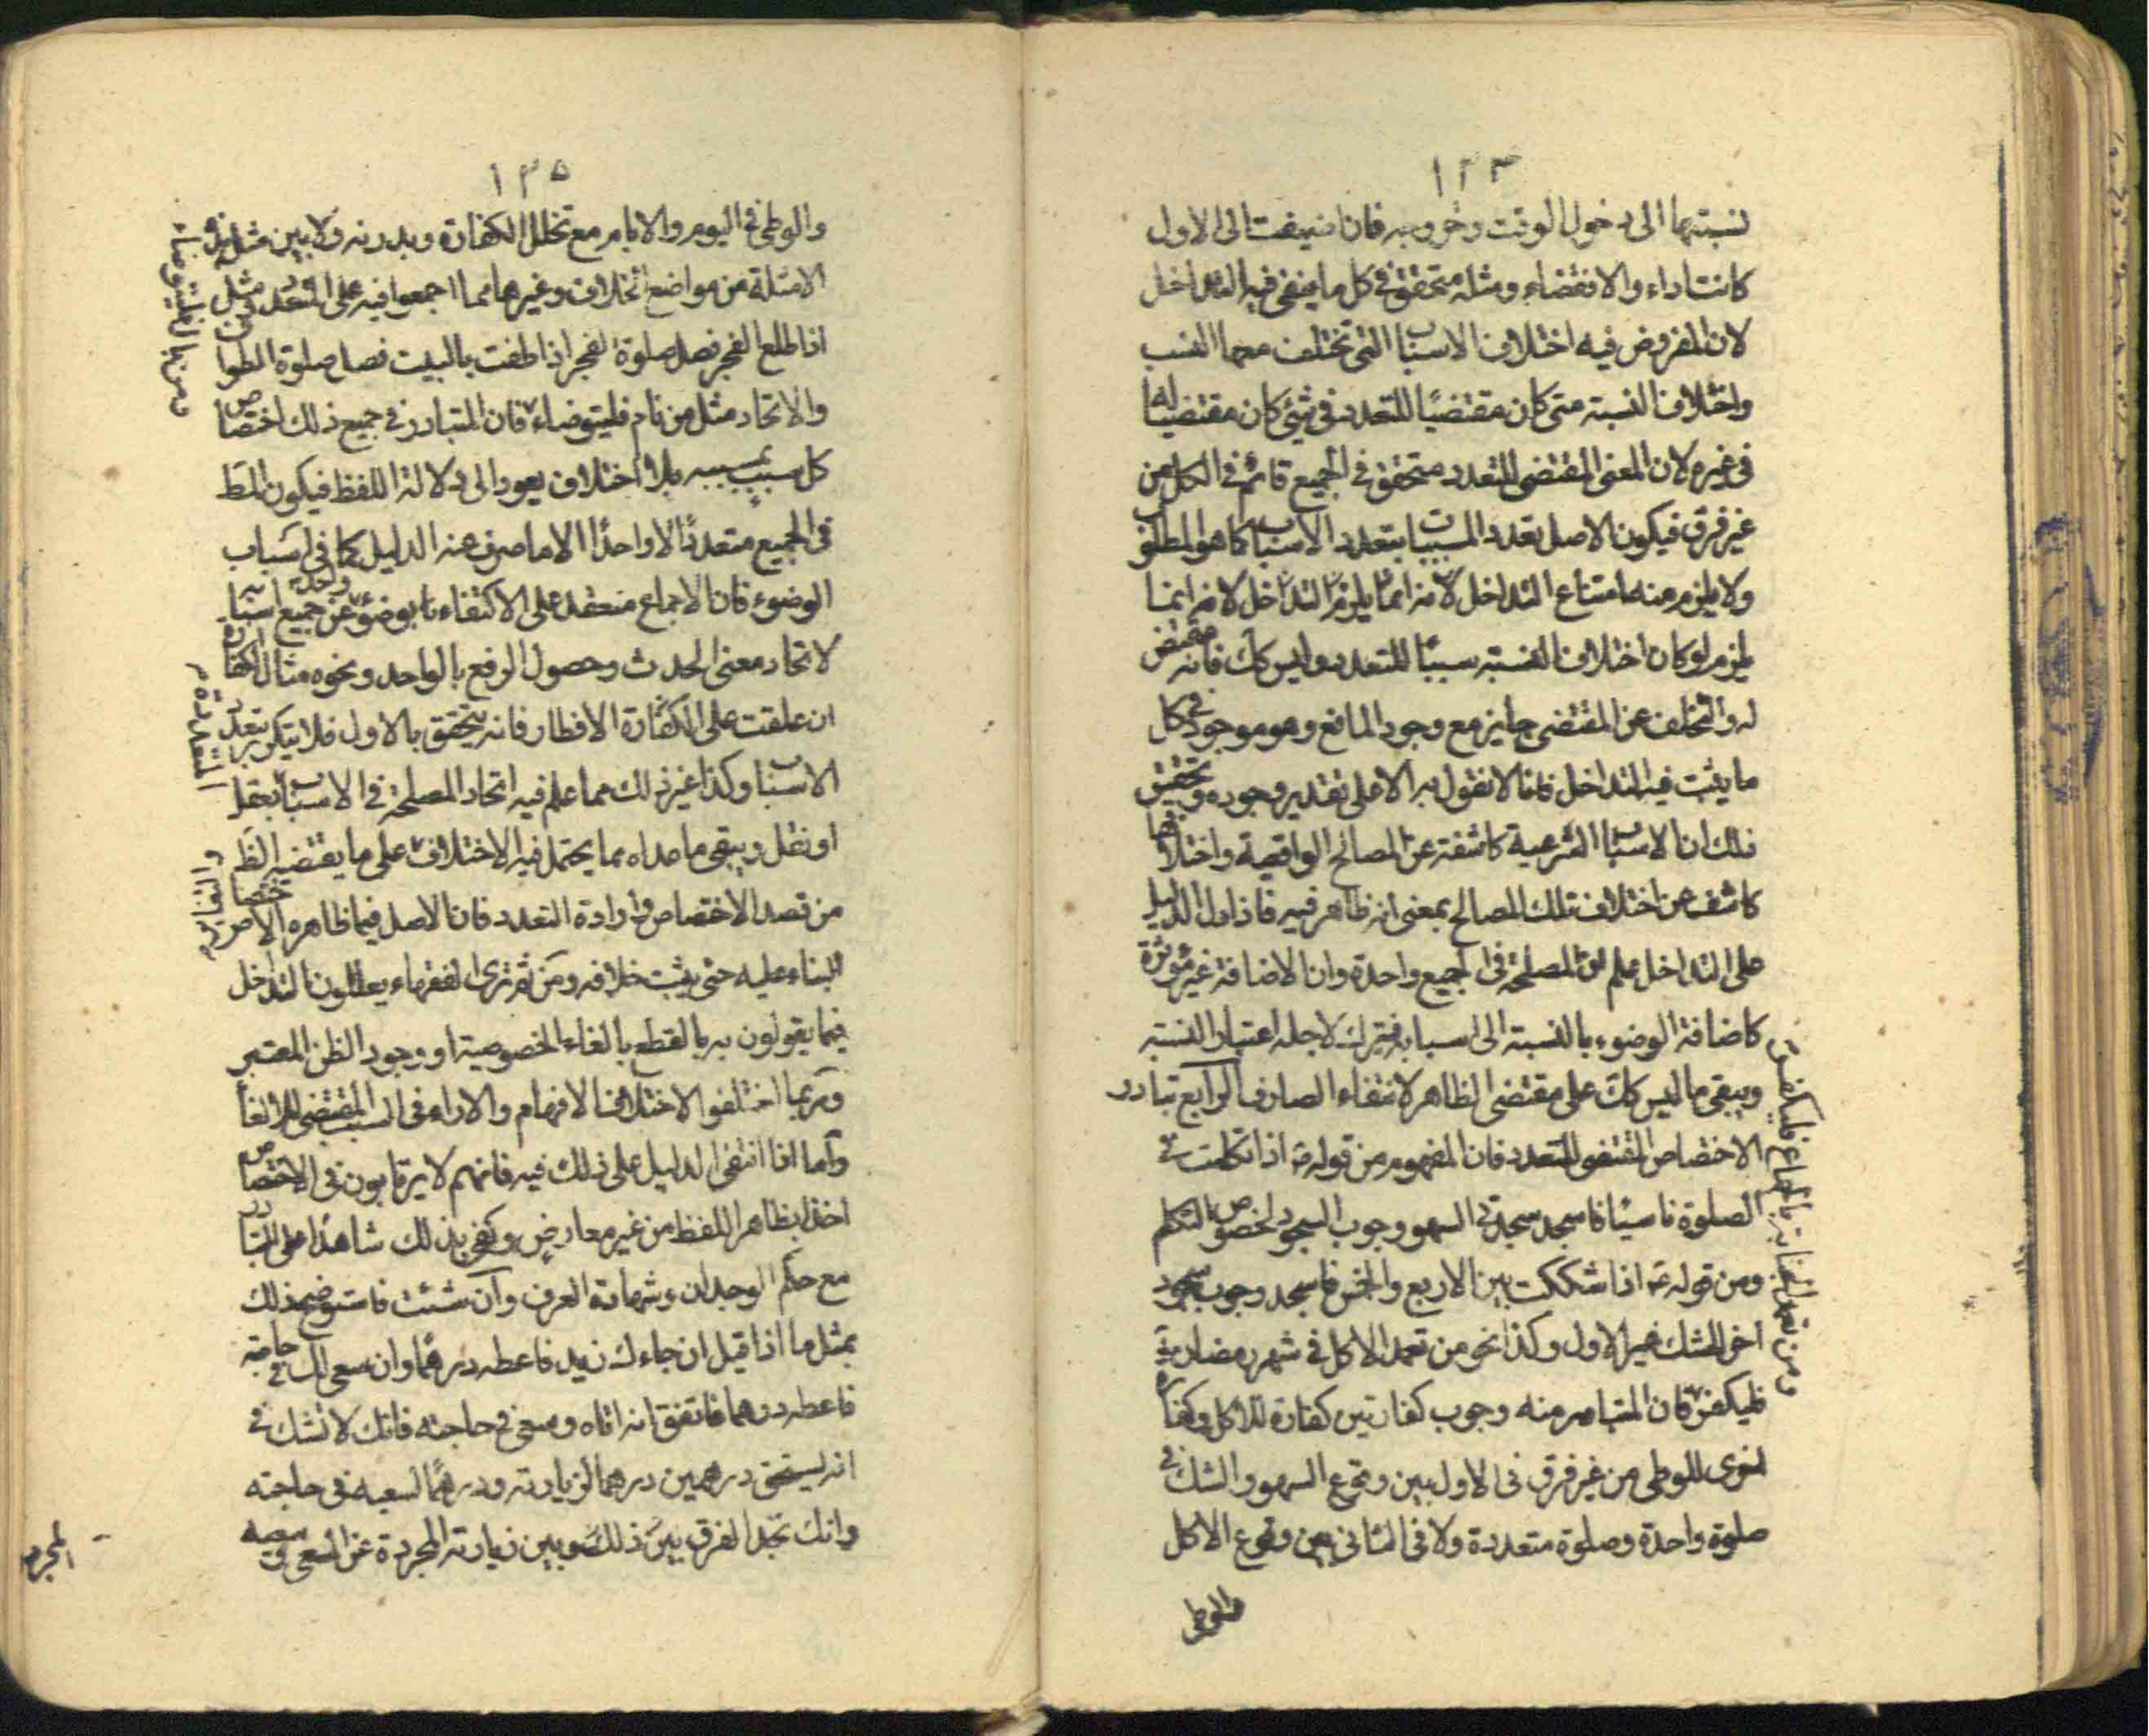 ١٣٤
نسبتهما الى دخول الوقت وخروجه فان اضيفت الى الاول
كانت اداء والا فقضاء ومثله متحقق في كل ما ينفى فيه التداخل
لان المفروض فيه اختلاف الاسباب التى تختلف معها النسب
واختلاف النسبة متى كان مقتضيًا للتعدد في شيئ كان مقتضيا له
في غيره لان المعنى المقتضى للتعدد متحقق في الجميع قائم في الكل من
غير فرق فيكون الاصل تعدد المسببات بتعدد الاسباب كما هو المطلوب
ولا يلزم منه امتناع التداخل لانه انما يلزم التداخل لانه انما
يلزم لو كان اختلاف النسبة سببًا للتعدد وليس كك فانه مقتض
له والتخلف عن المقتضى جايز مع وجود المانع وهو موجود في كل
ما يثبت فيه التداخل فانا لا نقول به الا على تقدير وجوده وتحقيق
ذلك ان الاسباب الشرعية كاشفة عن المصالح الواقعية واختلافها
كاشف عن اختلاف تلك المصالح بمعنى انه ظاهر فيه فاذا دل الدليل
على التداخل علم ان المصلحة في الجميع واحدة وان الاضافة غير مؤثرة
كاضافة الوضوء بالنسبة الى اسبابه فيترك لاجله اعتبار النسبة
ويبقى ما ليس كك على مقتضى الظاهر لانتفاء الصارف الرابع تبادر
الاختصاص المقتضى للتعدد فان المفهوم من قوله ع اذا تكلمت في
الصلوة ناسيًا فاسجد سجدتى السهو وجوب السجود لخصوص التكلم
ومن قوله ع اذا شككت بين الاربع والخمس فاسجد وجوب سجود
اخر للشك غير الاول وكذا نحو من تعمد الاكل في شهر رمضان
فليكفر فان المتبادر منه وجوب كفارتين كفارة للاكل وكفارة
اخرى للوطى من غير فرق في الاول بين وقوع السهو والشك في
صلوة واحدة وصلوة متعددة ولا في الثاني بين وقوع الاكل
والوطى
ومن تعمد الجنابة بالجماع فليكفر
١٣٥
والوطى في اليوم والايام مع تخلل الكفارة وبدونه ولا بين مثل هذه
الامثلة من مواضع الخلاف وغيرها مما اجمعوا فيه على التعدد مثل
اذا طلع الفجر فصل صلوة الفجر اذا طفت بالبيت فصل صلوة الطواف
والاتحاد مثل من نام فليتوضاء فان المتبادر في جميع ذلك اختصاص
كل سبب بمسببه بلا اختلاف يعود الى دلالة اللفظ فيكون المط
في الجميع متعددًا لا واحدًا الا ما صرف عنه الدليل كما في اسباب
الوضوء فان الاجماع منعقد على الاكتفاء بوضوء واحد عن جميع اسبابه
لاتحاد معنى الحدث وحصول الرفع بالواحد ونحوه مثال الكفارة
ان علقت على الكفارة الافطار فانه يتحقق بالاول فلا يتكرر بتعدد
الاسباب وكذا غير ذلك مما علم فيه اتحاد المصلحة في الاسباب بعقل
او نقل ويبقى ما عداه مما يحتمل فيه الاختلاف على ما يقتضيه الظ
من قصد الاختصاص وارادة التعدد فان الاصل فيما ظاهره الاختصاص
البناء عليه حتى يثبت خلافه ومن ثم ترى الفقهاء يعللون التداخل
فيما يقولون به بالقطع بالغاء الخصوصية او وجود الظن المعتبر
وربما اختلفوا لاختلاف الافهام والاراء في السبب المقتضى للالغاء
واما اذا انتفى الدليل على ذلك فيه فانهم لا يرتابون في الاختصاص
اخذا بظاهر اللفظ من غير معارض وكفى بذلك شاهدًا على التبادر
مع حكم الوجدان وشهادة العرف وان شئت فاستوضح ذلك
بمثل ما اذا قيل ان جاءك زيد فاعطه درهمًا وان سعى لك في حاجة
فاعطه درهما فاتفق انه اتاه وسعى في حاجته فانك لا تشك في
انه يستحق درهمين درهما لزيارته ودرهمًا لسعيه في حاجته
وانك تجد الفرق بين ذلك وبين زيارته المجردة عن السعى وسعيه
المجرد
ومن بال فليتوضاء
المتعمدة
والتغاير